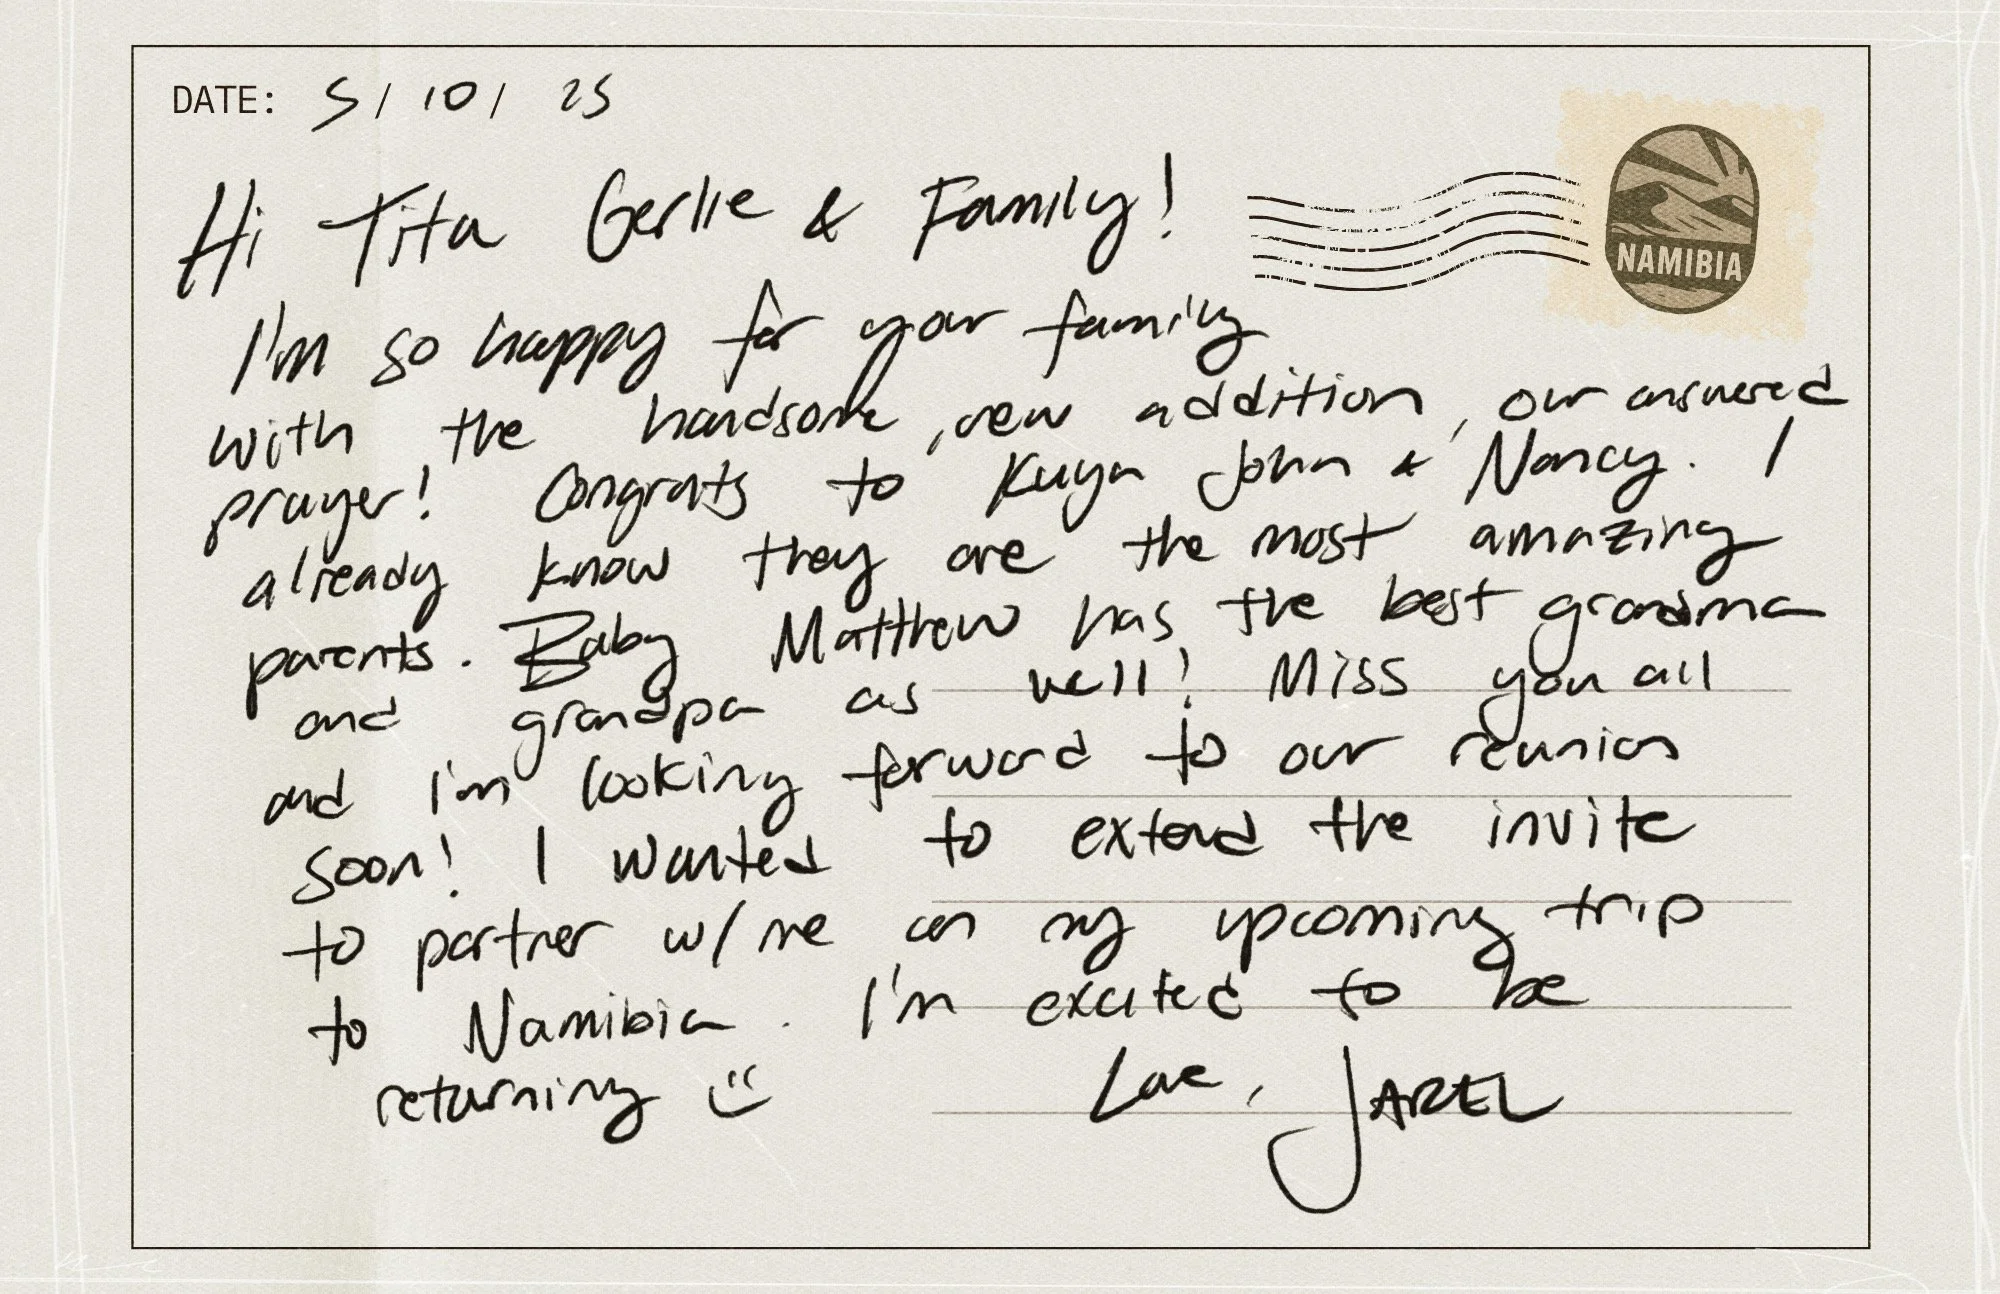 DATE: 5/10/25
NAMIBIA
Hi Tita Gerlie & Family!
I'm so happy for your family
with the handsome, new addition, our answered
prayer! Congrats to Kuya John & Nancy. I
already know they are the most amazing
parents. Baby Matthew has the best grandma
and grandpa as well! Miss you all
and I'm looking forward to our reunion
soon! I wanted to extend the invite
to partner w/ me on my upcoming trip
to Namibia. I'm excited to be
returning :)
Love, JAREL